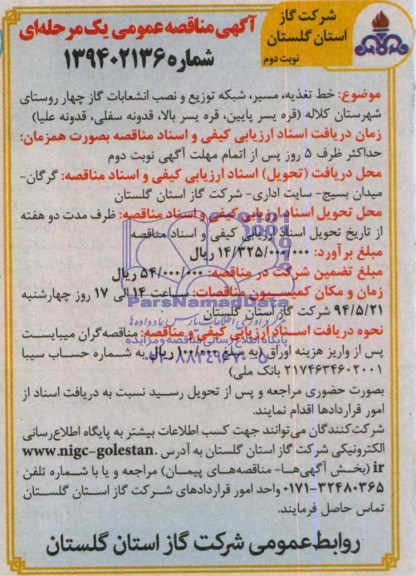 شرکت گاز
استان گلستان
نوبت دوم
آگهی مناقصه عمومی یک مرحله‌ای
شماره ۱۳۹۴۰۲۱۳۶
موضوع: خط تغذیه، مسیر، شبکه توزیع و نصب انشعابات گاز چهار روستای
شهرستان کلاله (قره یسر پایین، قره یسر بالا، قدونه سفلی، قدونه علیا)
زمان دریافت اسناد ارزیابی کیفی و اسناد مناقصه بصورت همزمان:
حداکثر ظرف ۵ روز پس از اتمام مهلت آگهی نوبت دوم
محل دریافت (تحویل) اسناد ارزیابی کیفی و اسناد مناقصه: گرگان-
میدان بسیج- سایت اداری- شرکت گاز استان گلستان
محل تحویل اسناد ارزیابی کیفی و اسناد مناقصه: ظرف مدت دو هفته
از تاریخ تحویل اسناد ارزیابی کیفی و اسناد مناقصه
مبلغ برآورد: ۱۴/۳۲۵/۰۰۰/۰۰۰ ریال
مبلغ تضمین شرکت در مناقصه: ۵۴/۰۰۰/۰۰۰ ریال
زمان و مکان کمیسیون مناقصات: ساعت ۱۴ الی ۱۷ روز چهارشنبه
۹۴/۵/۲۱ شرکت گاز استان گلستان
نحوه دریافت اسناد ارزیابی کیفی و مناقصه: مناقصه‌گران میبایست
پس از واریز هزینه اوراق به مبلغ ۱۰۰/۰۰۰ ریال به شماره حساب سیبا
۲۱۷۴۶۳۴۶۰۲۰۰۱ بانک ملی)
بصورت حضوری مراجعه و پس از تحویل رسید نسبت به دریافت اسناد از
امور قراردادها اقدام نمایند.
شرکت‌کنندگان می‌توانند جهت کسب اطلاعات بیشتر به پایگاه اطلاع‌رسانی
الکترونیکی شرکت گاز استان گلستان به آدرس www.nigc-golestan.
ir (بخش آگهی‌ها- مناقصه‌های پیمان) مراجعه و یا با شماره تلفن
۳۲۴۸۰۳۶۵-۰۱۷۱ واحد امور قراردادهای شرکت گاز استان گلستان
تماس حاصل فرمایند.
روابط عمومی شرکت گاز استان گلستان
ParsNamadData
پایگاه اطلاع رسانی مناقصه و مزایده